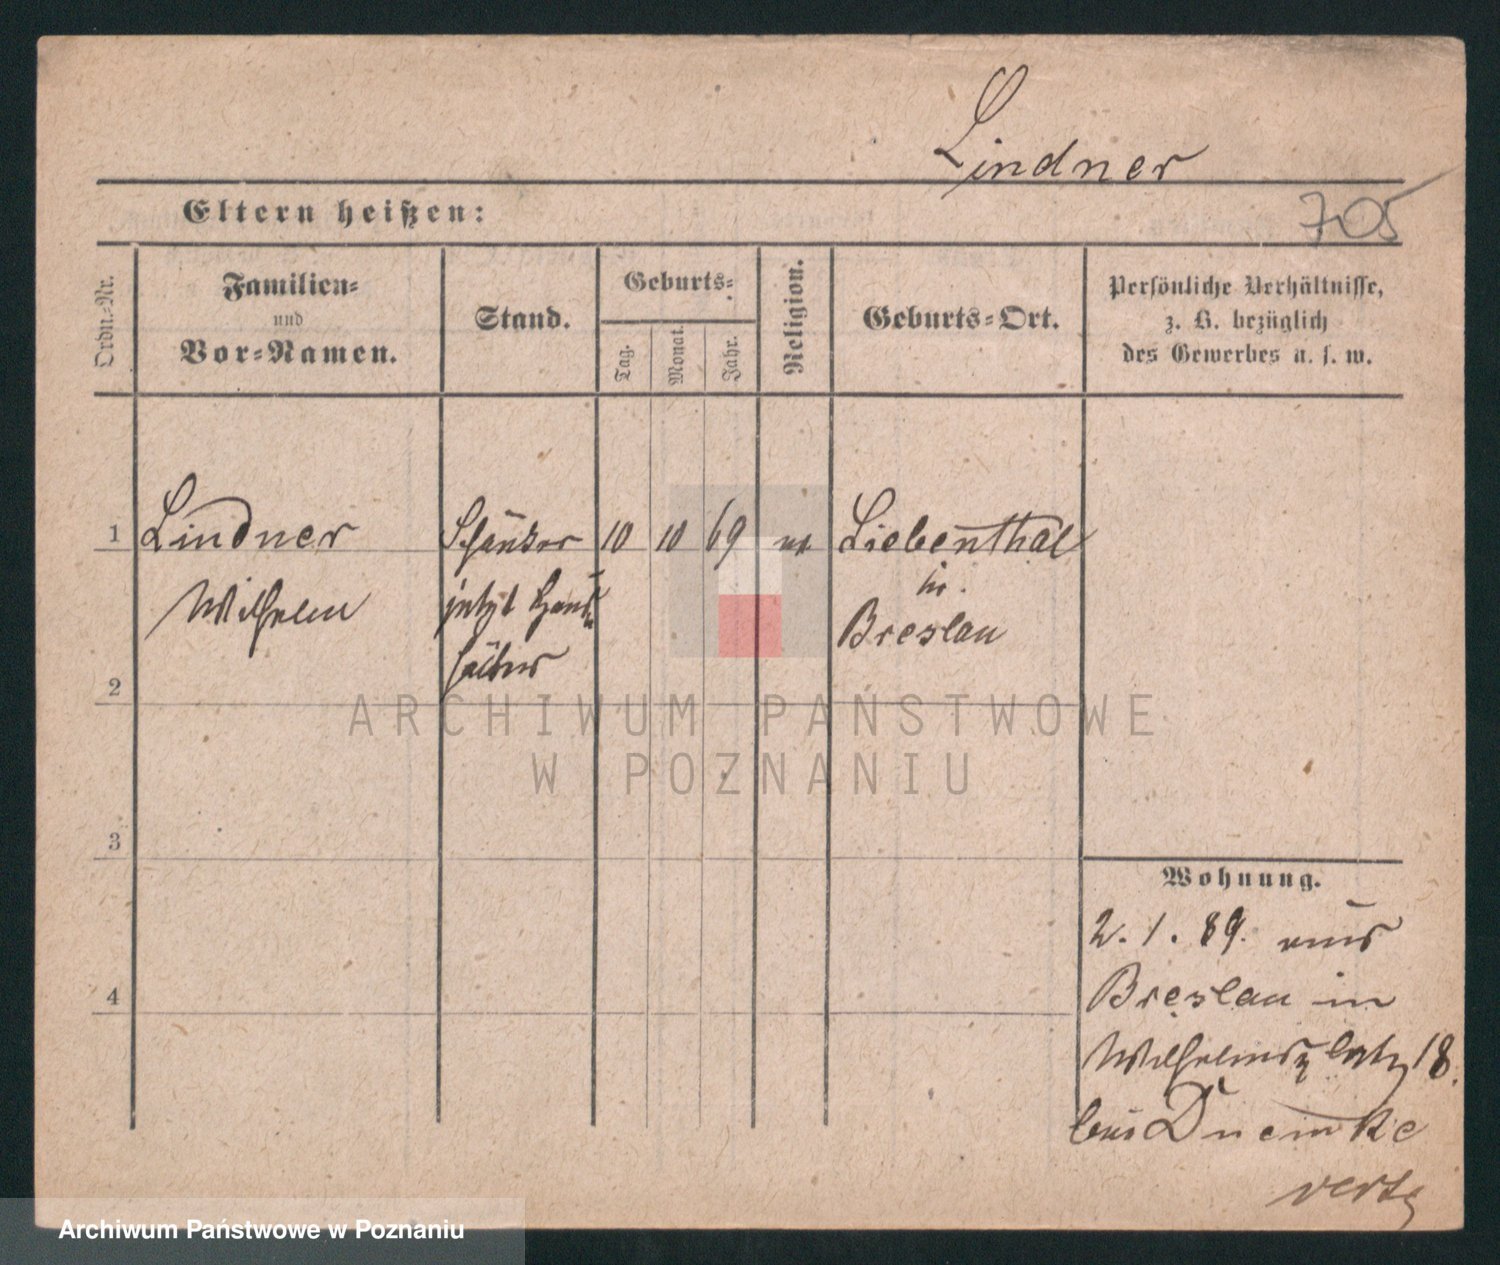 Lindner
Eltern heißen:
705
Ordn.-Nr.
Familien-
und
Vor-Namen.
Stand.
Geburts-
Tag.
Monat.
Jahr.
Religion.
Geburts-Ort.
Persönliche Verhältnisse,
z. B. bezüglich
des Gewerbes u. s. w.
1
Lindner
Wilhelm
Schänker
jetzt Haus-
hälter
10
10
69
Liebenthal
in
Breslau
2
3
4
ARCHIWUM PAŃSTWOWE
W POZNANIU
Wohnung.
2. 1. 89. aus
Breslau in
Wilhelmsplatz 18.
bei Duemke
Archiwum Państwowe w Poznaniu